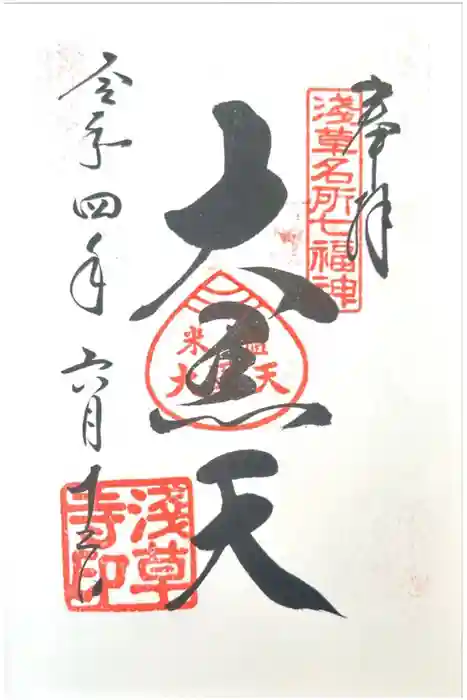 奉拝
淺草名所七福神
大黒天
米盥
大黒天
令和四年六月十三日
淺草
寺印